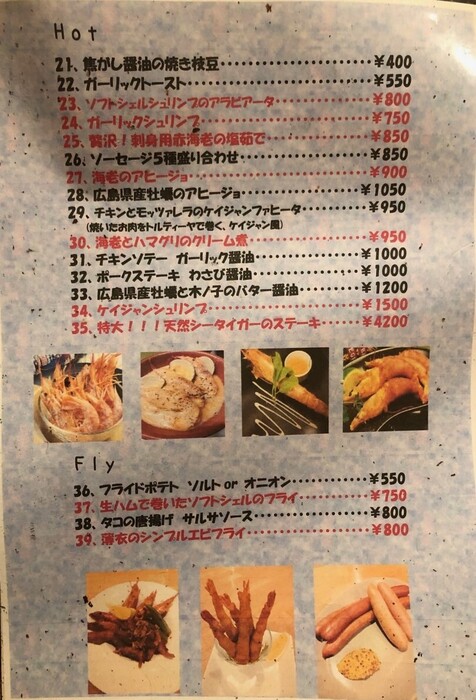 Hot
21、焦がし醤油の焼き枝豆・・・・・・・・・・・・・・・・・・¥400
22、ガーリックトースト・・・・・・・・・・・・・・・・・・¥550
23、ソフトシェルシュリンプのアラビアータ・・・・・・・・・・¥800
24、ガーリックシュリンプ・・・・・・・・・・・・・・・・・¥750
25、贅沢!刺身用赤海老の塩茹で・・・・・・・・・・・・・¥850
26、ソーセージ5種盛り合わせ・・・・・・・・・・・・・・¥850
27、海老のアヒージョ・・・・・・・・・・・・・・・・・・¥900
28、広島県産牡蠣のアヒージョ・・・・・・・・・・・・・・¥1050
29、チキンとモッツァレラのケイジャンファヒータ・・・・・・・¥950
(焼いたお肉をトルティーヤで巻く、ケイジャン風)
30、海老とハマグリのクリーム煮・・・・・・・・・・・・・¥950
31、チキンソテー ガーリック醤油・・・・・・・・・・・・¥1000
32、ポークステーキ わさび醤油・・・・・・・・・・・・・¥1000
33、広島県産牡蠣と木ノ子のバター醤油・・・・・・・・・¥1200
34、ケイジャンシュリンプ・・・・・・・・・・・・・・・・¥1500
35、特大!!!天然シータイガーのステーキ・・・・・・・・¥4200
Fly
36、フライドポテト ソルト or オニオン・・・・・・・・・・¥550
37、生ハムで巻いたソフトシェルのフライ・・・・・・・・・¥750
38、タコの唐揚げ サルサソース・・・・・・・・・・・・・¥800
39、薄衣のシンプルエビフライ・・・・・・・・・・・・・・¥800